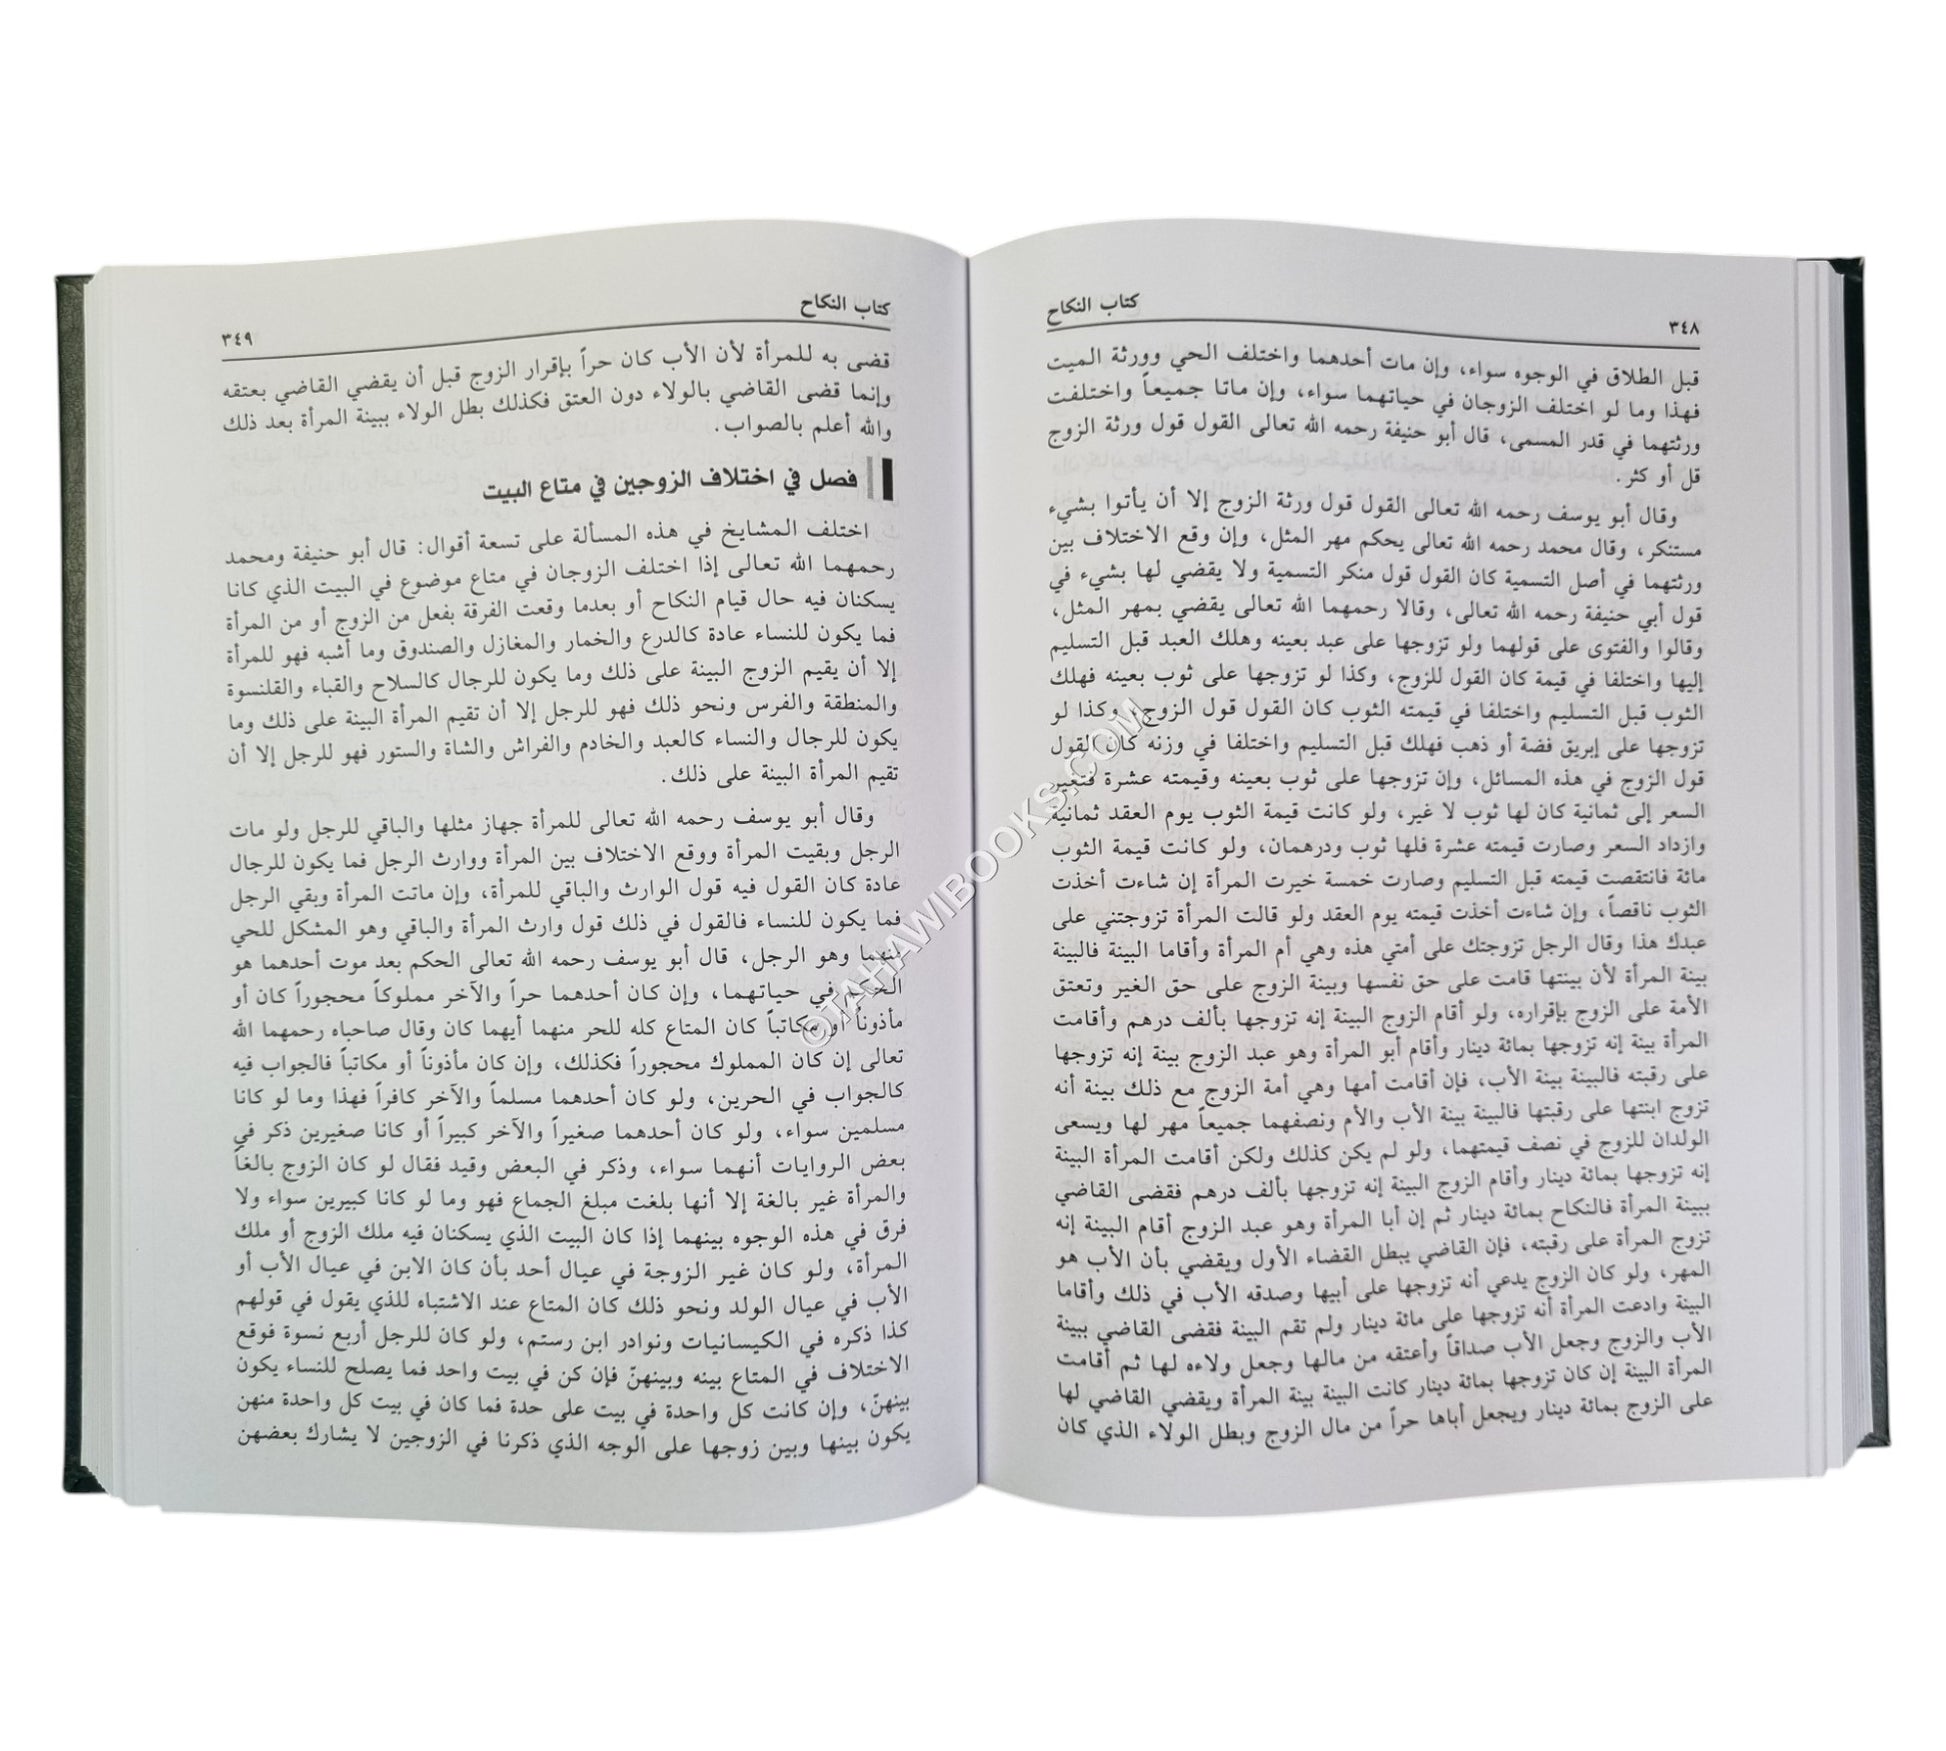 ٣٤٨
كتاب النكاح
قبل الطلاق في الوجوه سواء، وإن مات أحدهما واختلف الحي وورثة الميت
فهذا وما لو اختلف الزوجان في حياتهما سواء، وإن ماتا جميعاً واختلفت
ورثتهما في قدر المسمى، قال أبو حنيفة رحمه الله تعالى القول قول ورثة الزوج
قل أو كثر.
وقال أبو يوسف رحمه الله تعالى القول قول ورثة الزوج إلا أن يأتوا بشيء
مستنكر، وقال محمد رحمه الله تعالى يحكم مهر المثل، وإن وقع الاختلاف بين
ورثتهما في أصل التسمية كان القول قول منكر التسمية ولا يقضي لها بشيء في
قول أبي حنيفة رحمه الله تعالى، وقالا رحمهما الله تعالى يقضي بمهر المثل،
وقالوا والفتوى على قولهما ولو تزوجها على عبد بعينه وهلك العبد قبل التسليم
إليها واختلفا في قيمة كان القول للزوج، وكذا لو تزوجها على ثوب بعينه فهلك
الثوب قبل التسليم واختلفا في قيمته الثوب كان القول قول الزوج، وكذا لو
تزوجها على إبريق فضة أو ذهب فهلك قبل التسليم واختلفا في وزنه كان القول
قول الزوج في هذه المسائل، وإن تزوجها على ثوب بعينه وقيمته عشرة فتغير
السعر إلى ثمانية كان لها ثوب لا غير، ولو كانت قيمة الثوب يوم العقد ثمانية
وازداد السعر وصارت قيمته عشرة فلها ثوب ودرهمان، ولو كانت قيمة الثوب
مائة فانتقصت قيمته قبل التسليم وصارت خمسة خيرت المرأة إن شاءت أخذت
الثوب ناقصاً، وإن شاءت أخذت قيمته يوم العقد ولو قالت المرأة تزوجتني على
عبدك هذا وقال الرجل تزوجتك على أمتي هذه وهي أم المرأة وأقاما البينة فالبينة
بينة المرأة لأن بينتها قامت على حق نفسها وبينة الزوج على حق الغير وتعتق
الأمة على الزوج بإقراره، ولو أقام الزوج البينة إنه تزوجها بألف درهم وأقامت
المرأة بينة إنه تزوجها بمائة دينار وأقام أبو المرأة وهو عبد الزوج بينة إنه تزوجها
على رقبته فالبينة بينة الأب، فإن أقامت أمها وهي أمة الزوج مع ذلك بينة أنه
تزوج ابنتها على رقبتها فالبينة بينة الأب والأم ونصفهما جميعاً مهر لها ويسعى
الولدان للزوج في نصف قيمتهما، ولو لم يكن كذلك ولكن أقامت المرأة البينة
إنه تزوجها بمائة دينار وأقام الزوج البينة إنه تزوجها بألف درهم فقضى القاضي
ببينة المرأة فالنكاح بمائة دينار ثم إن أبا المرأة وهو عبد الزوج أقام البينة إنه
تزوج المرأة على رقبته، فإن القاضي يبطل القضاء الأول ويقضي بأن الأب هو
المهر، ولو كان الزوج يدعي أنه تزوجها على أبيها وصدقه الأب في ذلك وأقاما
البينة وادعت المرأة أنه تزوجها على مائة دينار ولم تقم البينة فقضى القاضي ببينة
الأب والزوج وجعل الأب صداقاً وأعتقه من مالها وجعل ولاءه لها ثم أقامت
المرأة البينة إن كان تزوجها بمائة دينار كانت البينة بينة المرأة ويقضي القاضي لها
على الزوج بمائة دينار ويجعل أباها حراً من مال الزوج وبطل الولاء الذي كان
كتاب النكاح
٣٤٩
قضى به للمرأة لأن الأب كان حراً بإقرار الزوج قبل أن يقضي القاضي بعتقه
وإنما قضى القاضي بالولاء دون العتق فكذلك بطل الولاء ببينة المرأة بعد ذلك
والله أعلم بالصواب.
فصل في اختلاف الزوجين في متاع البيت
اختلف المشايخ في هذه المسألة على تسعة أقوال: قال أبو حنيفة ومحمد
رحمهما الله تعالى إذا اختلف الزوجان في متاع موضوع في البيت الذي كانا
يسكنان فيه حال قيام النكاح أو بعدما وقعت الفرقة بفعل من الزوج أو من المرأة
فما يكون للنساء عادة كالدرع والخمار والمغازل والصندوق وما أشبه فهو للمرأة
إلا أن يقيم الزوج البينة على ذلك وما يكون للرجال كالسلاح والقباء والقلنسوة
والمنطقة والفرس ونحو ذلك فهو للرجل إلا أن تقيم المرأة البينة على ذلك وما
يكون للرجال والنساء كالعبد والخادم والفراش والشاة والستور فهو للرجل إلا أن
تقيم المرأة البينة على ذلك.
وقال أبو يوسف رحمه الله تعالى للمرأة جهاز مثلها والباقي للرجل ولو مات
الرجل وبقيت المرأة ووقع الاختلاف بين المرأة ووارث الرجل فما يكون للرجال
عادة كان القول فيه قول الوارث والباقي للمرأة، وإن ماتت المرأة وبقي الرجل
فما يكون للنساء فالقول في ذلك قول وارث المرأة والباقي وهو المشكل للحي
منهما وهو الرجل، قال أبو يوسف رحمه الله تعالى الحكم بعد موت أحدهما هو
الحكم في حياتهما، وإن كان أحدهما حراً والآخر مملوكاً محجوراً كان أو
مأذوناً أو مكاتباً كان المتاع كله للحر منهما أيهما كان وقال صاحباه رحمهما الله
تعالى إن كان المملوك محجوراً فكذلك، وإن كان مأذوناً أو مكاتباً فالجواب فيه
كالجواب في الحرين، ولو كان أحدهما مسلماً والآخر كافراً فهذا وما لو كانا
مسلمين سواء، ولو كان أحدهما صغيراً والآخر كبيراً أو كانا صغيرين ذكر في
بعض الروايات أنهما سواء، وذكر في البعض وقيد فقال لو كان الزوج بالغاً
والمرأة غير بالغة إلا أنها بلغت مبلغ الجماع فهو وما لو كانا كبيرين سواء ولا
فرق في هذه الوجوه بينهما إذا كان البيت الذي يسكنان فيه ملك الزوج أو ملك
المرأة، ولو كان غير الزوجة في عيال أحد بأن كان الابن في عيال الأب أو
الأب في عيال الولد ونحو ذلك كان المتاع عند الاشتباه للذي يقول في قولهم
كذا ذكره في الكيسانيات ونوادر ابن رستم، ولو كان للرجل أربع نسوة فوقع
الاختلاف في المتاع بينه وبينهنّ فإن كن في بيت واحد فما يصلح للنساء يكون
بينهنّ، وإن كانت كل واحدة في بيت على حدة فما كان في بيت كل واحدة منهن
يكون بينها وبين زوجها على الوجه الذي ذكرنا في الزوجين لا يشارك بعضهن
©TAHAWIBOOKS.COM